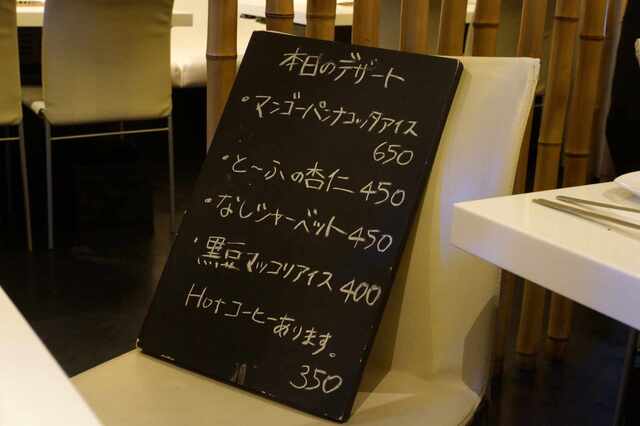 本日のデザート
・マンゴーパンナコッタアイス
650
・とーふの杏仁 450
・なしシャーベット 450
・黒豆マッコリアイス 400
Hotコーヒーあります。
350